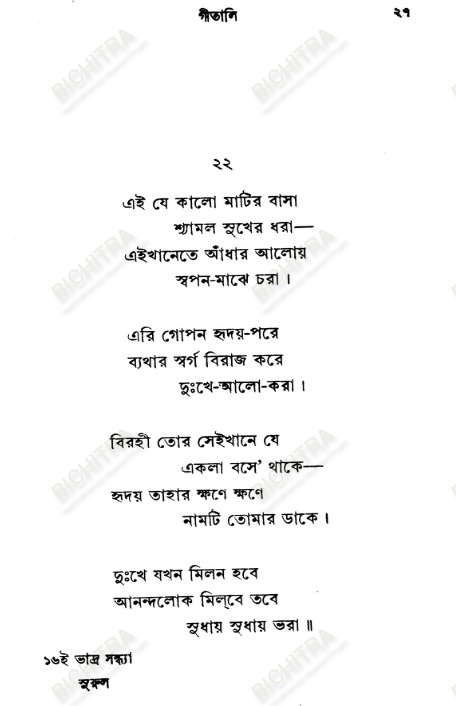 গীতালি ২৭
২২
এই যে কালো মাটির বাসা
শ্যামল সুখের ধরা—
এইখানেতে আঁধার আলোয়
স্বপন-মাঝে চরা ।
এরি গোপন হৃদয়-পরে
ব্যথার স্বর্গ বিরাজ করে
দুঃখে-আলো-করা ।
বিরহী তোর সেইখানে যে
একলা বসে' থাকে—
হৃদয় তাহার ক্ষণে ক্ষণে
নামটি তোমার ডাকে ।
দুঃখে যখন মিলন হবে
আনন্দলোক মিল্‌বে তবে
সুধায় সুধায় ভরা ॥
১৬ই ভাদ্র সন্ধ্যা
সুরুল
BICHITRA
BICHITRA
BICHITRA
BICHITRA
BICHITRA
BICHITRA
BICHITRA
BICHITRA